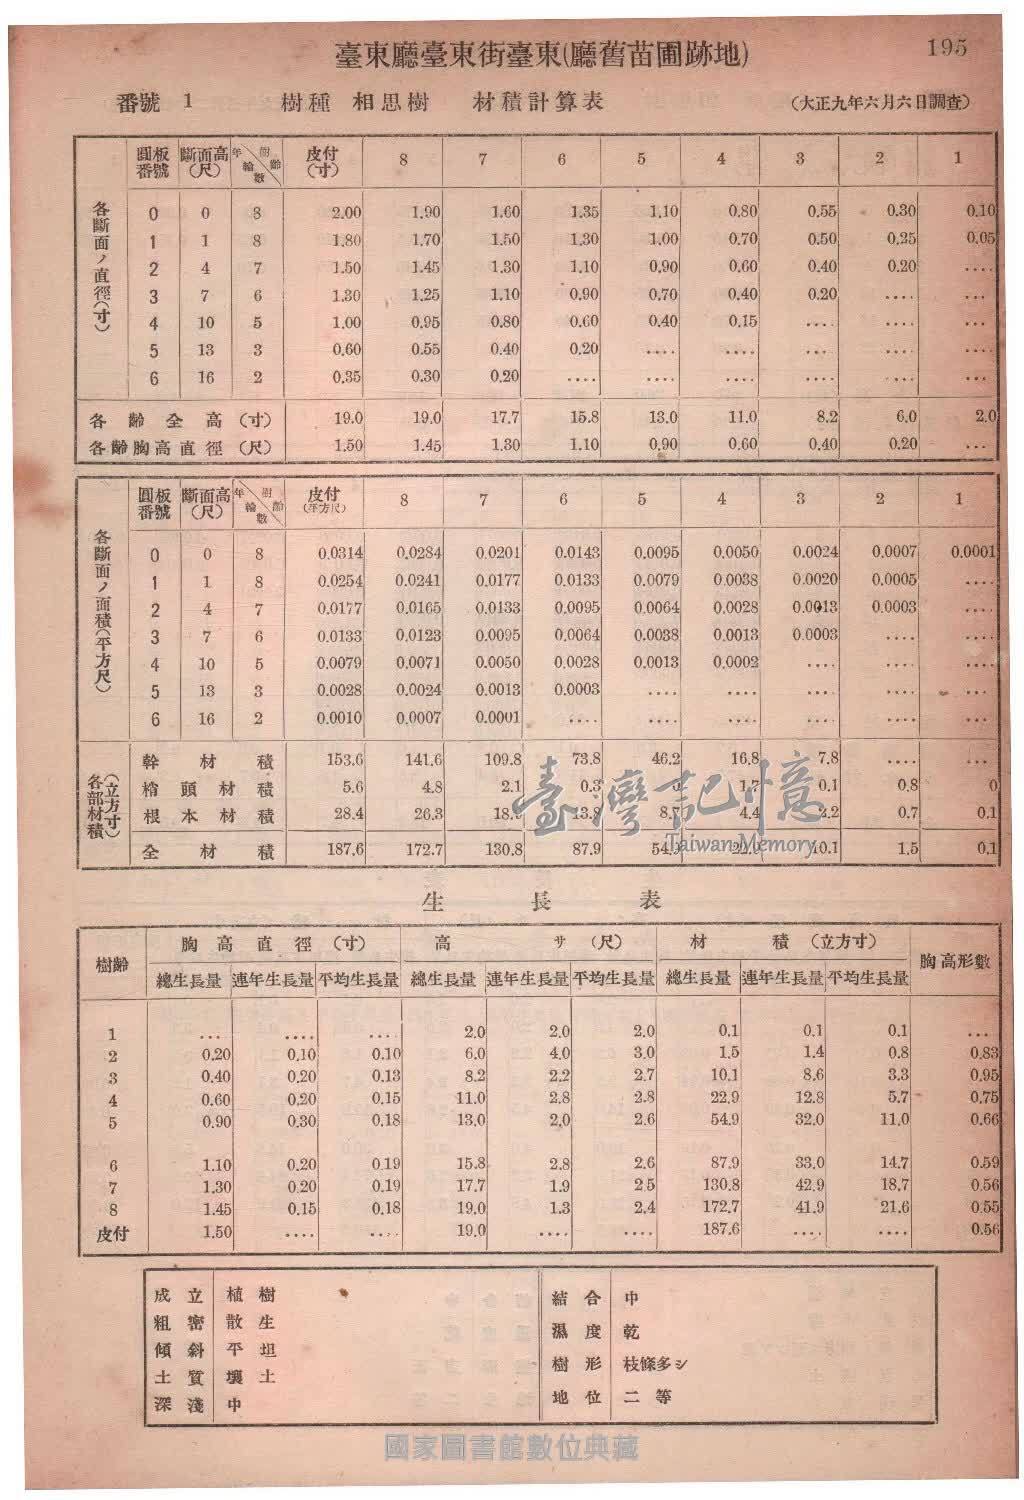 195
臺東廳臺東街臺東(廳舊苗圃跡地)
番號 1 樹種 相思樹 材積計算表 (大正九年六月六日調查)
各斷面ノ直徑(寸)
圓板番號 斷面高(尺) 年輪數 樹齡 皮付(寸) 8 7 6 5 4 3 2 1
0 0 8 2.00 1.90 1.60 1.35 1.10 0.80 0.55 0.30 0.10
1 1 8 1.80 1.70 1.50 1.30 1.00 0.70 0.50 0.25 0.05
2 4 7 1.50 1.45 1.30 1.10 0.90 0.60 0.40 0.20 ....
3 7 6 1.30 1.25 1.10 0.90 0.70 0.40 0.20 .... ...
4 10 5 1.00 0.95 0.80 0.60 0.40 0.15 .... .... ...
5 13 3 0.60 0.55 0.40 0.20 .... .... ... .... ...
6 16 2 0.35 0.30 0.20 .... .... .... .... .... ...
各齡全高(寸) 19.0 19.0 17.7 15.8 13.0 11.0 8.2 6.0 2.0
各齡胸高直徑(尺) 1.50 1.45 1.30 1.10 0.90 0.60 0.40 0.20 ...
各斷面ノ面積(平方尺)
圓板番號 斷面高(尺) 年輪數 樹齡 皮付(平方尺) 8 7 6 5 4 3 2 1
0 0 8 0.0314 0.0284 0.0201 0.0143 0.0095 0.0050 0.0024 0.0007 0.0001
1 1 8 0.0254 0.0241 0.0177 0.0133 0.0079 0.0038 0.0020 0.0005 ....
2 4 7 0.0177 0.0165 0.0133 0.0095 0.0064 0.0028 0.0013 0.0003 ....
3 7 6 0.0133 0.0123 0.0095 0.0064 0.0038 0.0013 0.0003 .... ....
4 10 5 0.0079 0.0071 0.0050 0.0028 0.0013 0.0002 .... .... ...
5 13 3 0.0028 0.0024 0.0013 0.0003 .... .... .... .... ...
6 16 2 0.0010 0.0007 0.0001 .... .... .... .... .... ...
各部材積(立方寸)
幹材積 153.6 141.6 109.8 73.8 46.2 16.8 7.8 .... ...
梢頭材積 5.6 4.8 2.1 0.3 0 1.7 0.1 0.8 0
根本材積 28.4 26.3 13.8 8.7 4.4 2.2 0.7 0.1
全材積 187.6 172.7 130.8 87.9 54.9 22.9 10.1 1.5 0.1
臺灣記憶
Taiwan Memory
生長表
樹齡 胸高直徑(寸) 高サ(尺) 材積(立方寸) 胸高形數
總生長量 連年生長量 平均生長量 總生長量 連年生長量 平均生長量 總生長量 連年生長量 平均生長量
1 ... .... .... 2.0 2.0 2.0 0.1 0.1 0.1 ...
2 0.20 0.10 0.10 6.0 4.0 3.0 1.5 1.4 0.8 0.83
3 0.40 0.20 0.13 8.2 2.2 2.7 10.1 8.6 3.3 0.95
4 0.60 0.20 0.15 11.0 2.8 2.8 22.9 12.8 5.7 0.75
5 0.90 0.30 0.18 13.0 2.0 2.6 54.9 32.0 11.0 0.66
6 1.10 0.20 0.19 15.8 2.8 2.6 87.9 33.0 14.7 0.59
7 1.30 0.20 0.19 17.7 1.9 2.5 130.8 42.9 18.7 0.56
8 1.45 0.15 0.18 19.0 1.3 2.4 172.7 41.9 21.6 0.55
皮付 1.50 .... .... 19.0 .... .... 187.6 .... .... 0.56
成立 植樹
粗密 散生
傾斜 平坦
土質 壤土
深淺 中
結合 中
濕度 乾
樹形 枝條多シ
地位 二等
國家圖書館數位典藏